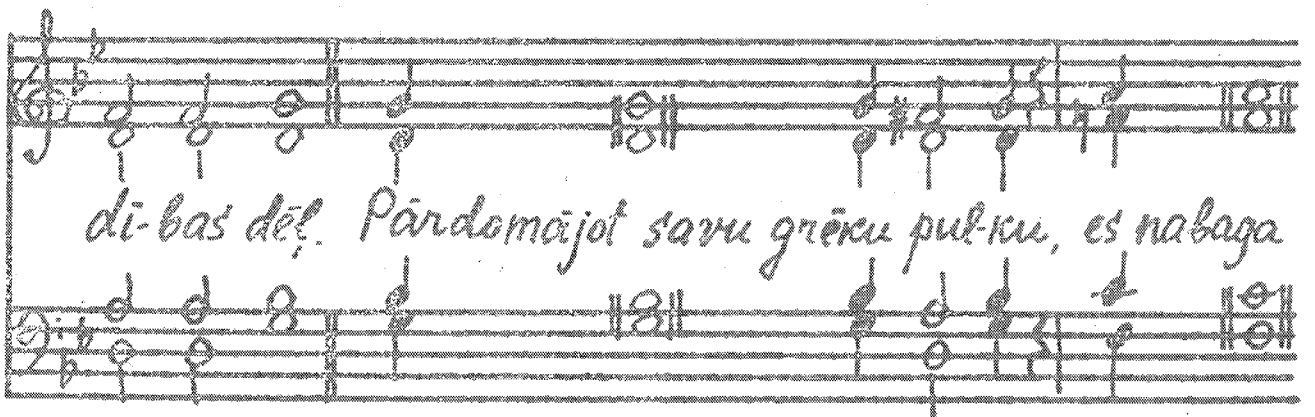 dī-bas dēļ. Pārdomājot savu grēku pul-ku, es nabaga